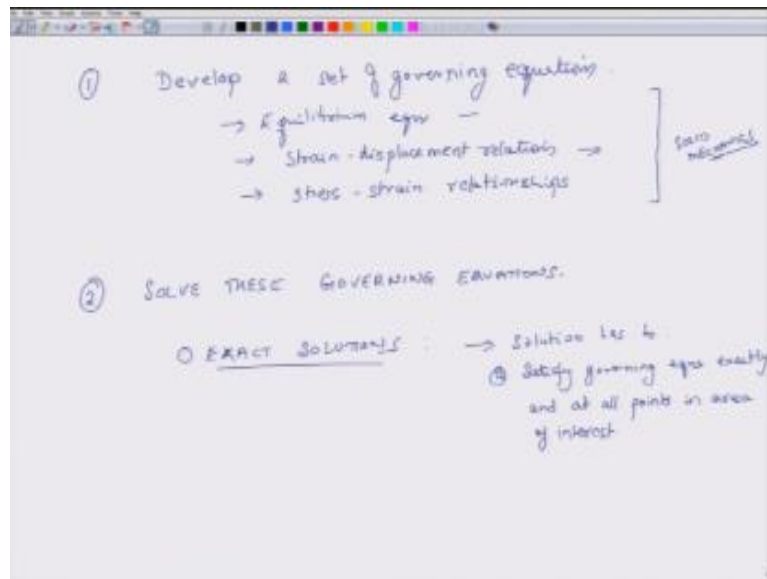 ① Develop a set of governing equations.
→ Equilibrium eqns —
→ Strain-displacement relations →
→ stress-strain relationships
SOLID MECHANICS
② SOLVE THESE GOVERNING EQUATIONS.
○ EXACT SOLUTIONS : → Solution has to
Satisfy governing eqns exactly
and at all points in area
of interest